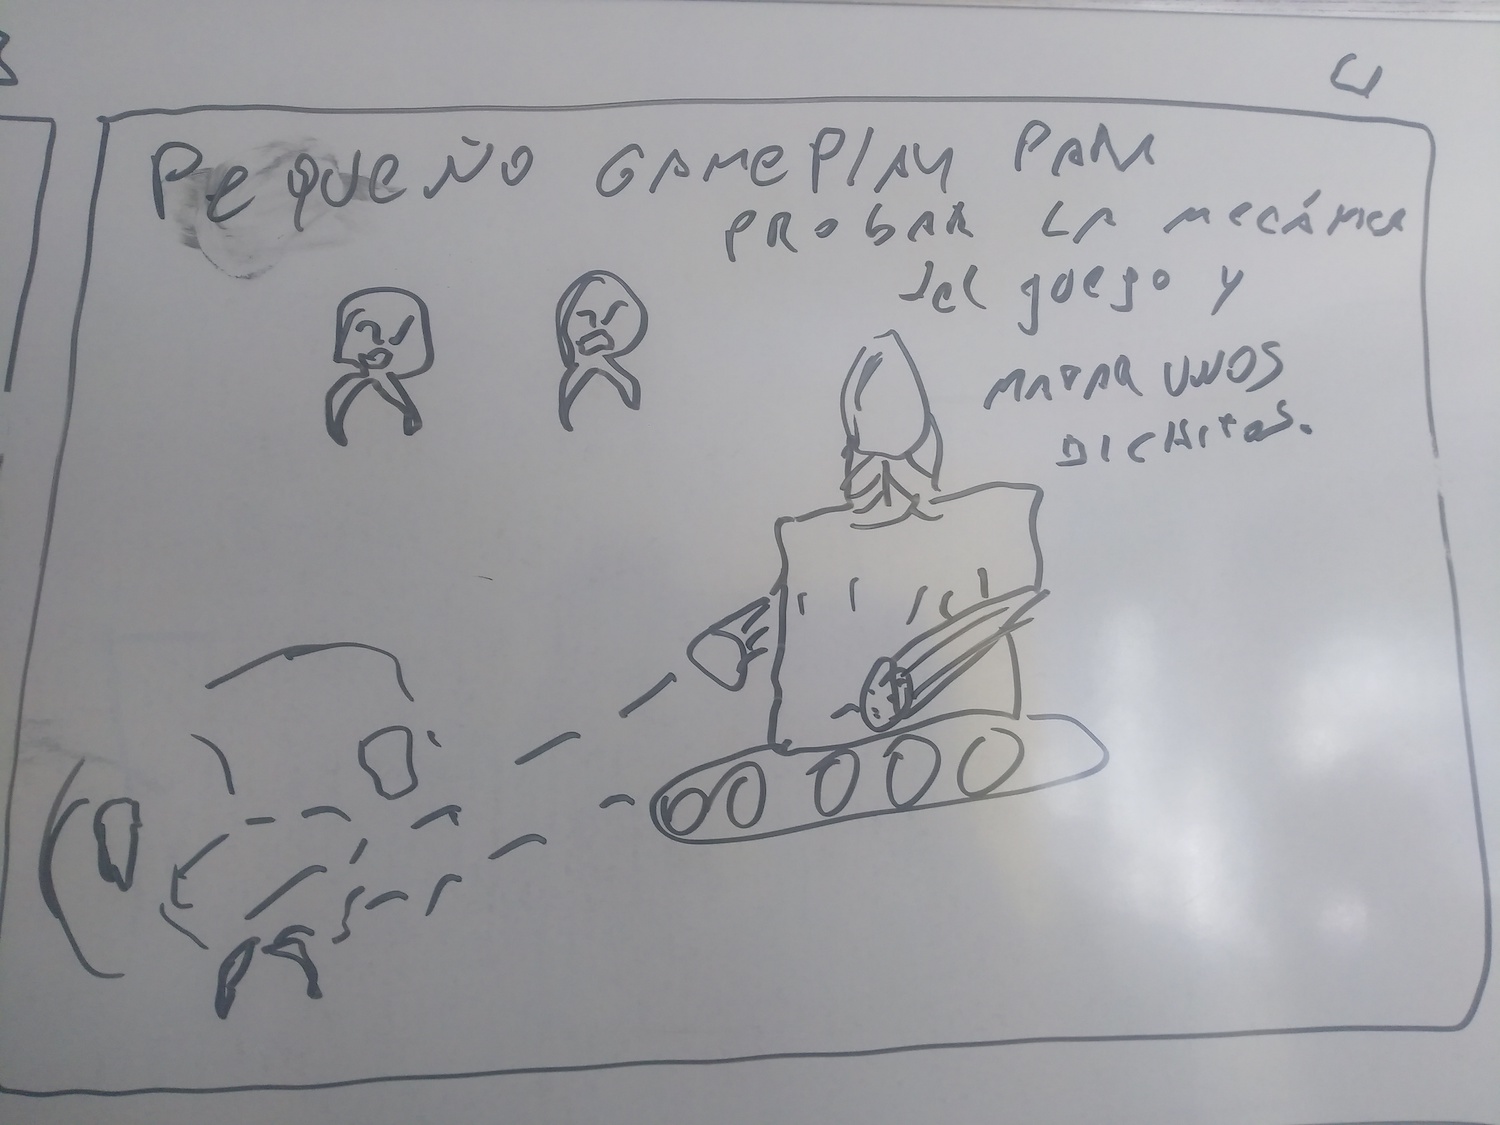 PequeÑO GAMePlAy PARA
PRObAR LA MeCÁNICA
del juego y
MATAR UNOS
BICHItOS.